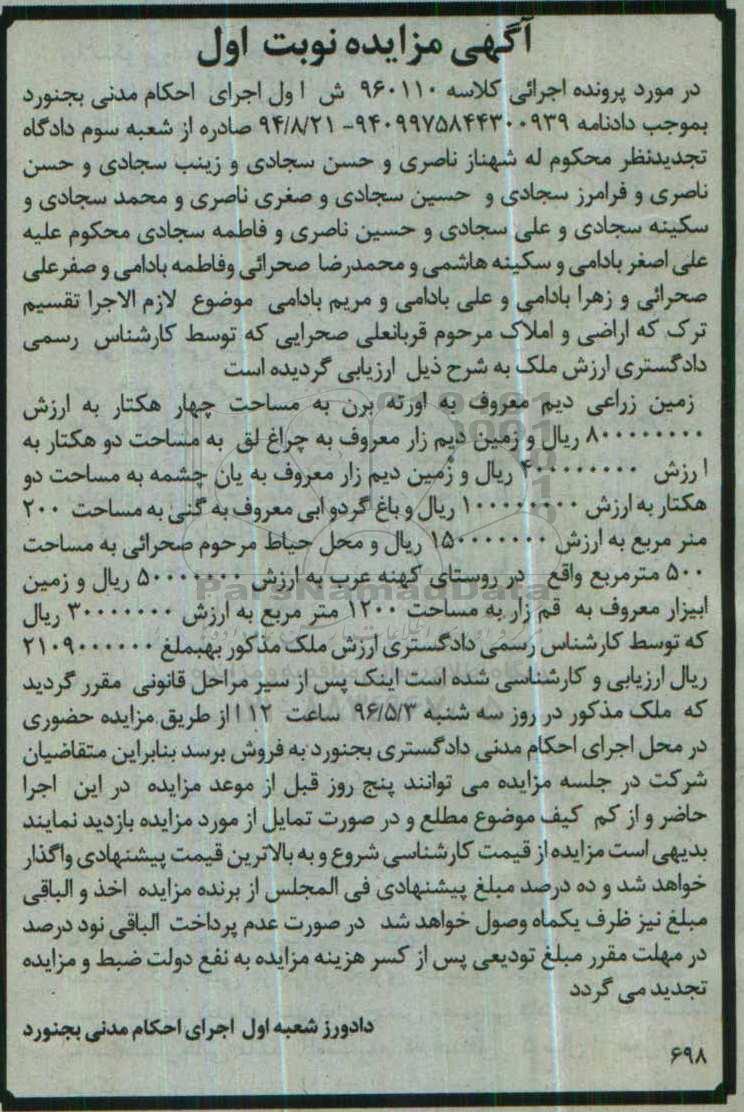 آگهی مزایده نوبت اول
در مورد پرونده اجرائی کلاسه ۹۶۰۱۱۰ ش ا ول اجرای احکام مدنی بجنورد
بموجب دادنامه ۹۴۰۹۹۷۵۸۴۴۳۰۰۹۳۹- ۹۴/۸/۲۱ صادره از شعبه سوم دادگاه
تجدیدنظر محکوم له شهناز ناصری و حسن سجادی و زینب سجادی و حسن
ناصری و فرامرز سجادی و حسین سجادی و صغری ناصری و محمد سجادی و
سکینه سجادی و علی سجادی و حسین ناصری و فاطمه سجادی محکوم علیه
علی اصغر بادامی و سکینه هاشمی و محمدرضا صحرائی وفاطمه بادامی و صفرعلی
صحرائی و زهرا بادامی و علی بادامی و مریم بادامی موضوع لازم الاجرا تقسیم
ترک که اراضی و املاک مرحوم قربانعلی صحرایی که توسط کارشناس رسمی
دادگستری ارزش ملک به شرح ذیل ارزیابی گردیده است
زمین زراعی دیم معروف به اورته برن به مساحت چهار هکتار به ارزش
۸۰۰۰۰۰۰۰۰ ریال و زمین دیم زار معروف به چراغ لق به مساحت دو هکتار به
ا رزش ۴۰۰۰۰۰۰۰۰ ریال و زمین دیم زار معروف به یان چشمه به مساحت دو
هکتار به ارزش ۱۰۰۰۰۰۰۰۰ ریال و باغ گردو ابی معروف به گنی به مساحت ۲۰۰
منر مربع به ارزش ۱۵۰۰۰۰۰۰۰ ریال و محل حیاط مرحوم صحرائی به مساحت
۵۰۰ مترمربع واقع در روستای کهنه عرب به ارزش ۵۰۰۰۰۰۰۰ ریال و زمین
ابیزار معروف به قم زار به مساحت ۱۲۰۰ متر مربع به ارزش ۳۰۰۰۰۰۰۰ ریال
که توسط کارشناس رسمی دادگستری ارزش ملک مذکور بهبملغ ۲۱۰۹۰۰۰۰۰۰
ریال ارزیابی و کارشناسی شده است اینک پس از سیر مراحل قانونی مقرر گردید
که ملک مذکور در روز سه شنبه ۹۶/۵/۳ ساعت ۱۲ ا از طریق مزایده حضوری
در محل اجرای احکام مدنی دادگستری بجنورد به فروش برسد بنابراین متقاضیان
شرکت در جلسه مزایده می توانند پنج روز قبل از موعد مزایده در این اجرا
حاضر و از کم کیف موضوع مطلع و در صورت تمایل از مورد مزایده بازدید نمایند
بدیهی است مزایده از قیمت کارشناسی شروع و به بالاترین قیمت پیشنهادی واگذار
خواهد شد و ده درصد مبلغ پیشنهادی فی المجلس از برنده مزایده اخذ و الباقی
مبلغ نیز ظرف یکماه وصول خواهد شد در صورت عدم پرداخت الباقی نود درصد
در مهلت مقرر مبلغ تودیعی پس از کسر هزینه مزایده به نفع دولت ضبط و مزایده
تجدید می گردد
دادورز شعبه اول اجرای احکام مدنی بجنورد
۶۹۸
ParsNamadData